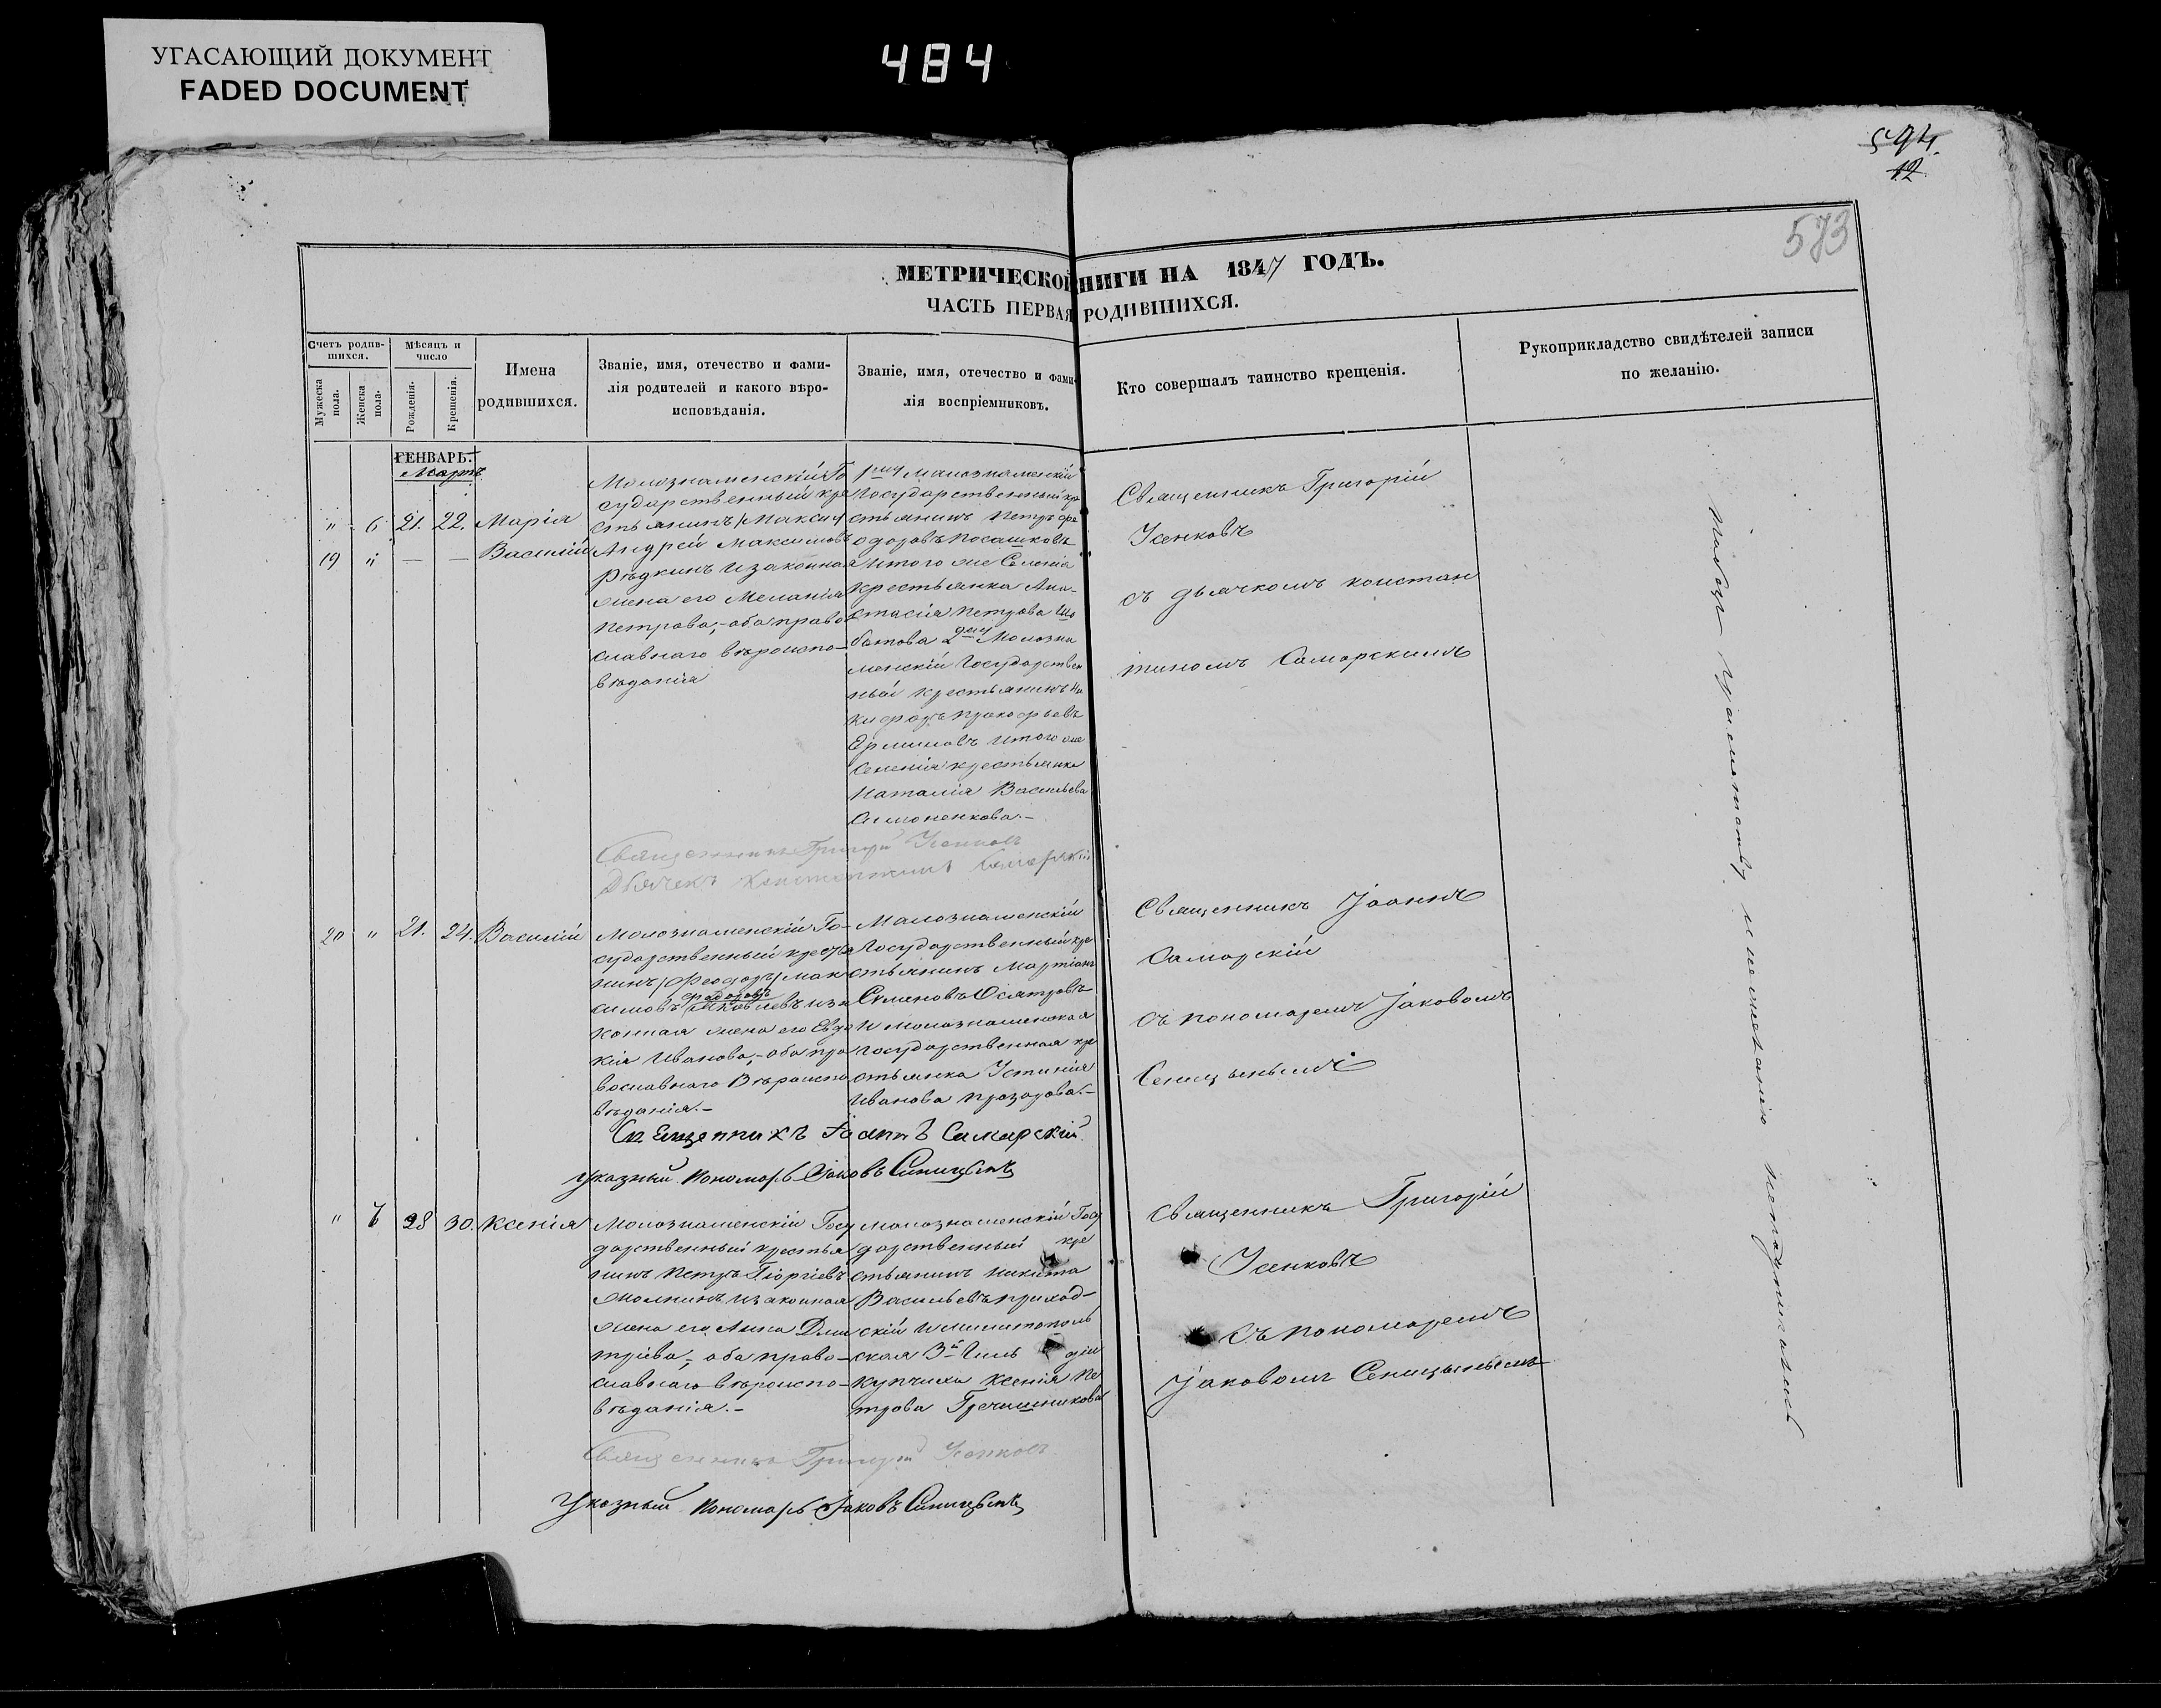 УГАСАЮЩИЙ ДОКУМЕНТ
FADED DOCUMENT
484
594.
12
573
МЕТРИЧЕСКОЙ НИГИ НА 1847 ГОДЪ.
ЧАСТЬ ПЕРВАЯ РОДИВШИХСЯ.
Счетъ родив-
шихся.
Мужеска
пола.
Женска
пола.
Мѣсяцъ и
число
Рожденія.
Крещенія.
Имена
родившихся.
Званіе, имя, отечество и фами-
лія родителей и какого вѣро-
исповѣданія.
Званіе, имя, отечество и фами-
лія воспріемниковъ.
Кто совершалъ таинство крещенія.
Рукоприкладство свидѣтелей записи
по желанію.
ГЕНВАРЬ.
Мартъ
" 6 21. 22. Марія
19 " — — Василій
Молознаменскій Го
сударственный кре
стьянинъ
Андрей Максимовъ
Рѣдкинъ и законная
жена его Меланія
Петрова,- оба право
славнаго вѣроиспо-
вѣданія
Малознаменскій
Государственный кре
стьянинъ Петръ Фе
одоровъ Посашковъ
и того же Селенія
крестьянка Ана-
стасія Петрова
батова 2 Молозна
менскій Государствен
ный крестьянинъ Ни
кифоръ Прокофьевъ
Ерминовъ и того же
Селенія крестьянка
Наталія Васильева
Симоненкова.-
Священникъ Григорій
Усенковъ
съ дьячкомъ констан
тиномъ Самарскимъ
Священникъ Григорій Усенковъ
Дьячекъ Константинъ Самарскій
20 " 21. 24. Василій
Молознаменскій Го-
сударственный крестья
нинъ Феодоръ Мак
симовъ и за
конная жена его Евдо
кія Иванова,- оба пра
вославнаго Вѣроиспо
вѣданія.-
Малознаменскій
Государственный кре
стьянинъ Мартіанъ
Семеновъ Осятровъ
и Молознаменская
Государственная кре
стьянка Устинія
Иванова Прозорова.-
Священникъ Іоаннъ
Самарскій
съ пономаремъ Іаковомъ
Сеницынымъ
Священникъ Іоаннъ Самарскій.
Указный Пономарь Іаковъ Синицынъ
" 7 28 30. Ксенія
Молознаменскій Госу
дарственный крестья
нинъ Петръ Гіоргіевъ
Жолнинъ и законная
жена его Анна Дми
тріева,- оба право-
славнаго вѣроиспо-
вѣданія.-
Малознаменскій Госу
дарственный кре
стьянинъ Никита
Васильевъ Приход-
скій и Мелитополь
ская 3й Гиль діи
купчиха Ксенія Пе
трова Гречишникова
Священникъ Григорій
Усенковъ
съ пономаремъ
Іаковомъ Сеницынымъ
Священникъ Григорій Усенковъ
Указный Пономарь Іаковъ Синицынъ